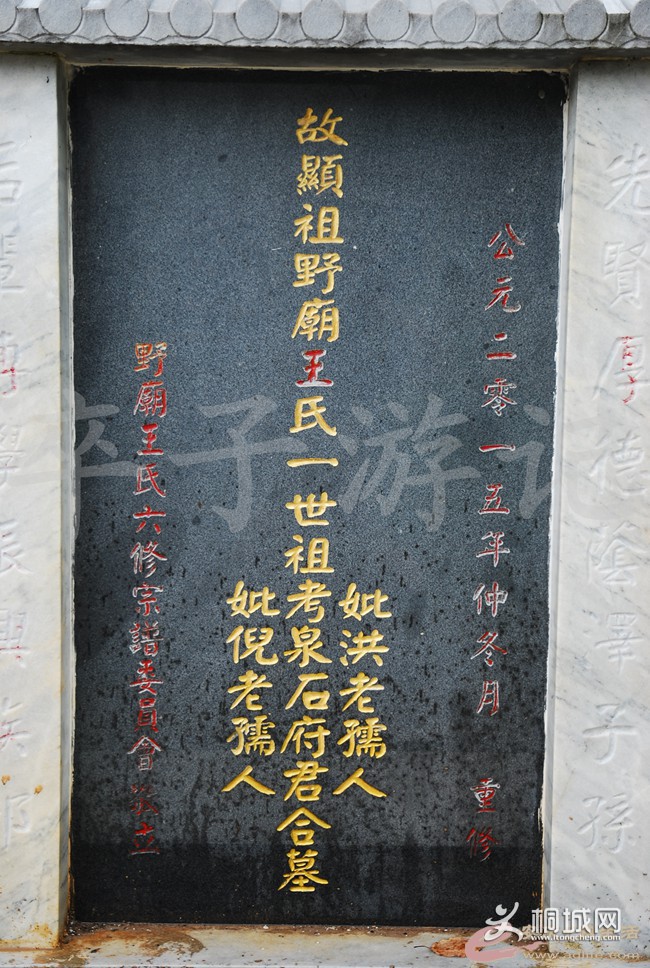 先賢厚德蔭澤子孫
公元二零一五年仲冬月 重修
妣洪老孺人
故顯祖野廟王氏一世祖考泉石府君合墓
妣倪老孺人
野廟王氏六修宗譜委員會敬立
卒子游记
桐城网
www.itongcheng.com